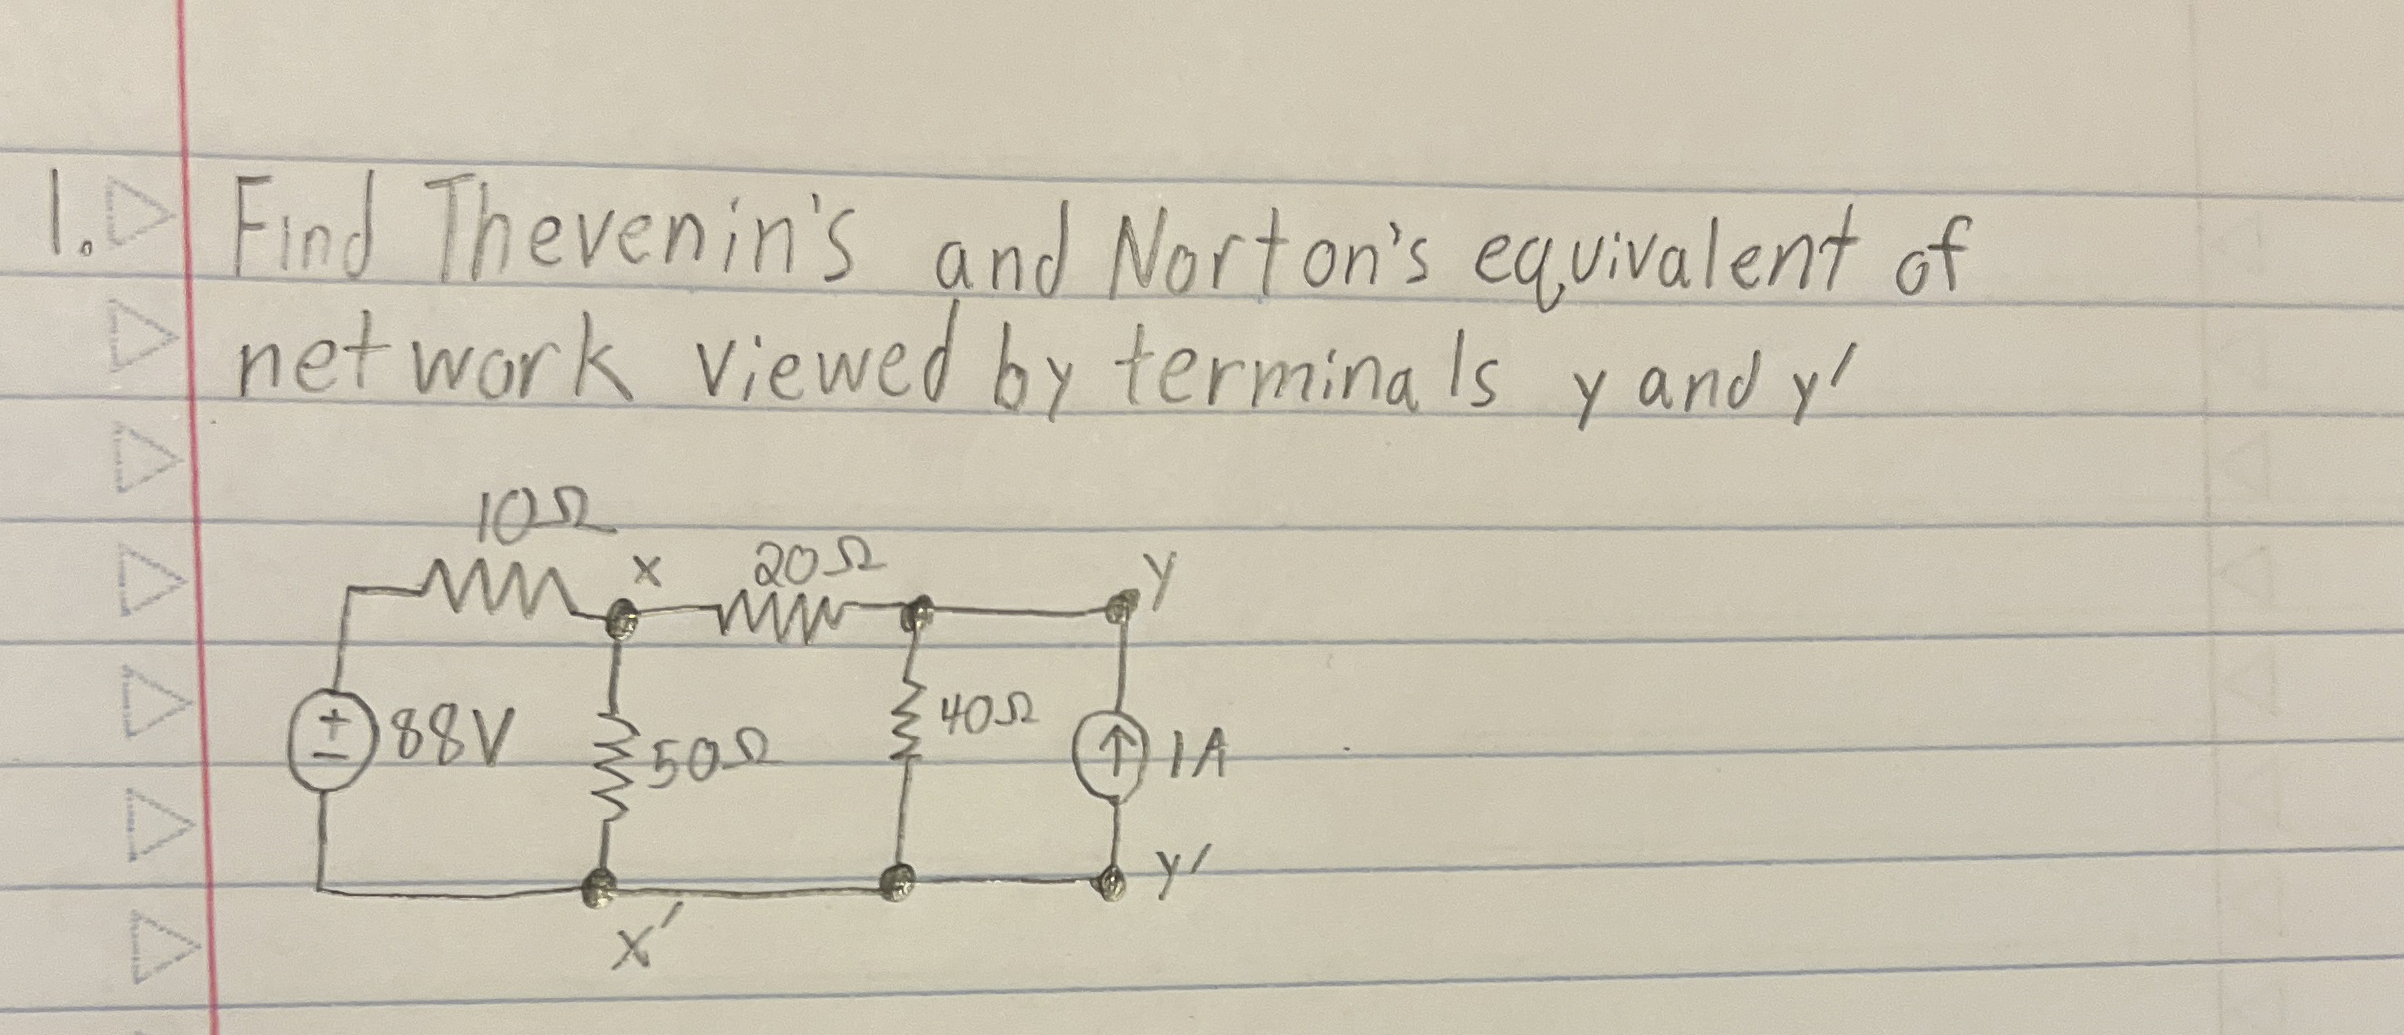 1. Find Thevenin's and Norton's equivalent of
network viewed by terminals y and y'
10Ω
x
20Ω
y
+
-
88V
50Ω
40Ω
1A
y'
x'